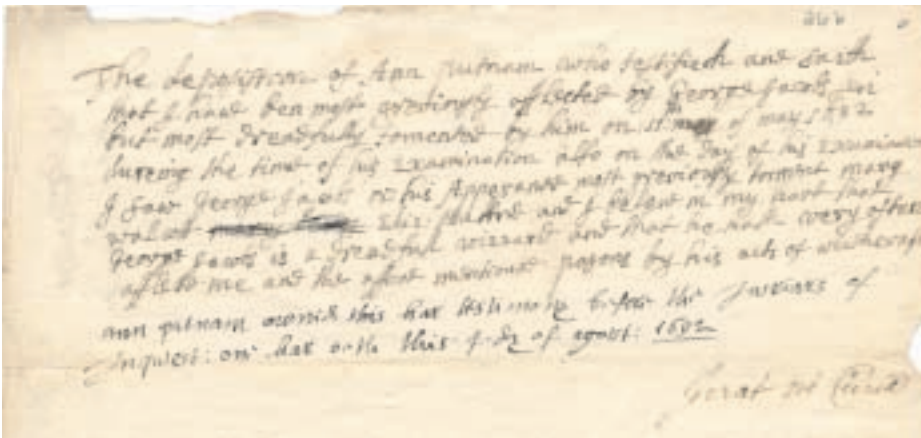 The deposistion of Ann putnam who testifieth and saith
that I haue ben most greviously afflected by George Jacobs
but most dreadfully tormented by him on of may 1692
dureing the time of his Examination also on the day of his Examination
I saw George Jacobs or his Apperance most greviously torment mary
walcot and I beleve in my heart that
George Jacobs is a dreadfull wizzard and that he hath very often
afflected me and the afore mentioned parsons by his acts of wicthcraft
ann putnam owned this har testimony before the Juriars of
Inquest: on har oath this 4 dy of agust: 1692
Jurat in Curia